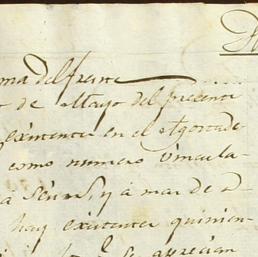 ma del frente
de Mayo del presente
existente en el
como numero vincula-
a y a mas de
hay existentes quinien-
se aprecian